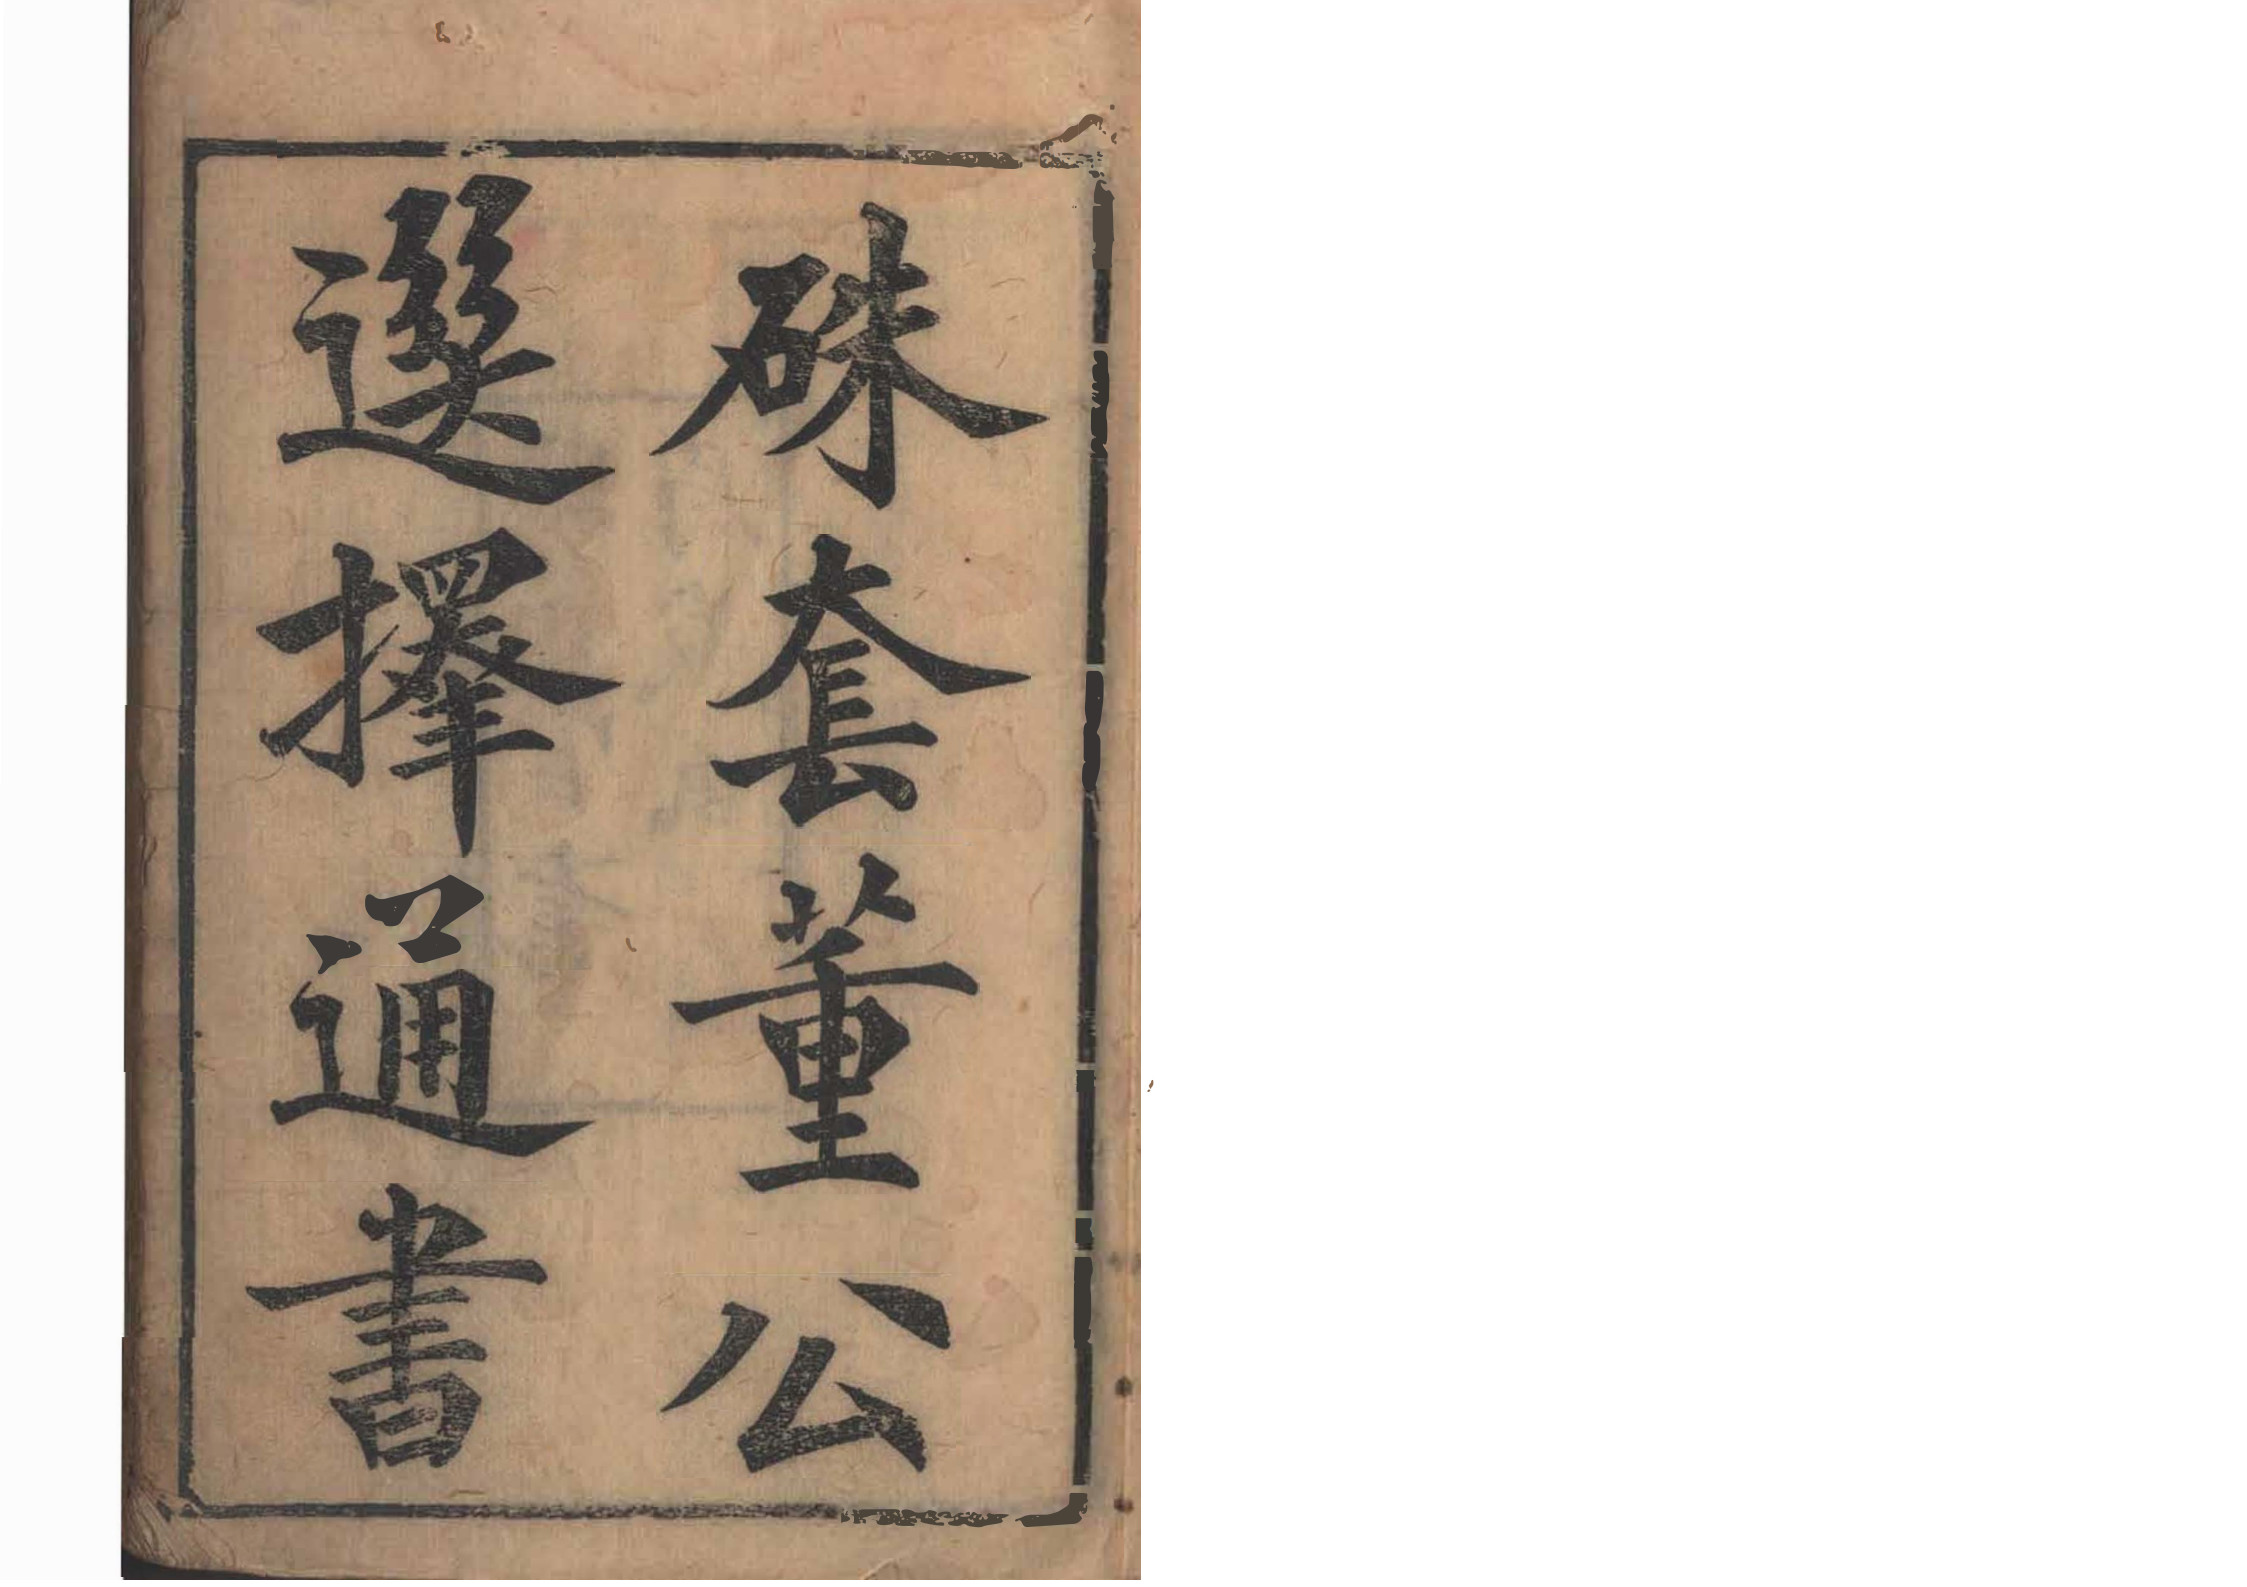 硃套董公
選擇通書